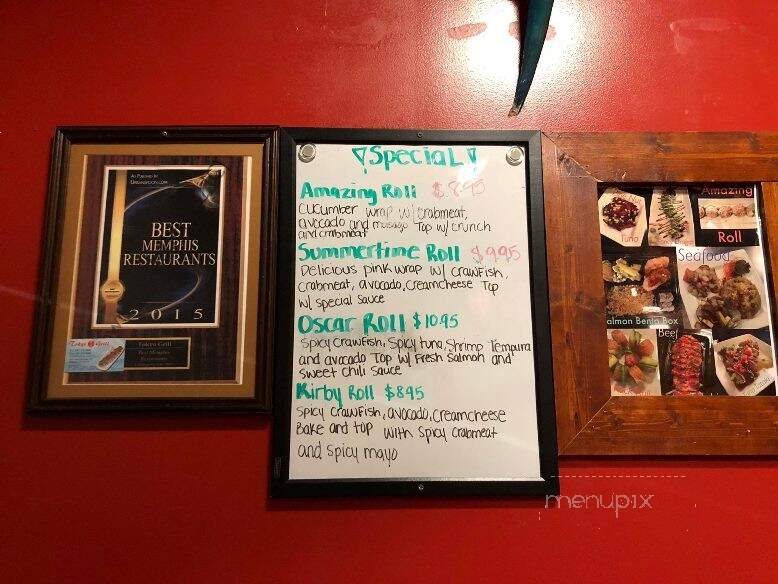 As Published In
Urbanspoon.com
BEST
MEMPHIS
RESTAURANTS
2015
Tokyo Grill
Tokyo Grill
Best Memphis
Restaurants
Special
Amazing Roll $8.95
Cucumber wrap w/ crabmeat,
avocado and masago Top w/ crunch
and crabmeat
Summertime Roll $9.95
Delicious pink wrap w/ crawfish,
crabmeat, avocado, creamcheese Top
w/ special sauce
Oscar Roll $10.95
Spicy crawfish, spicy tuna, shrimp Tempura
and avocado Top w/ Fresh Salmon and
sweet chili sauce
Kirby Roll $8.95
Spicy crawfish, avocado, creamcheese
Bake and top with spicy crabmeat
and spicy mayo
Amazing
Roll
Tuna
Seafood
almon Bento Box
Beef
menupix